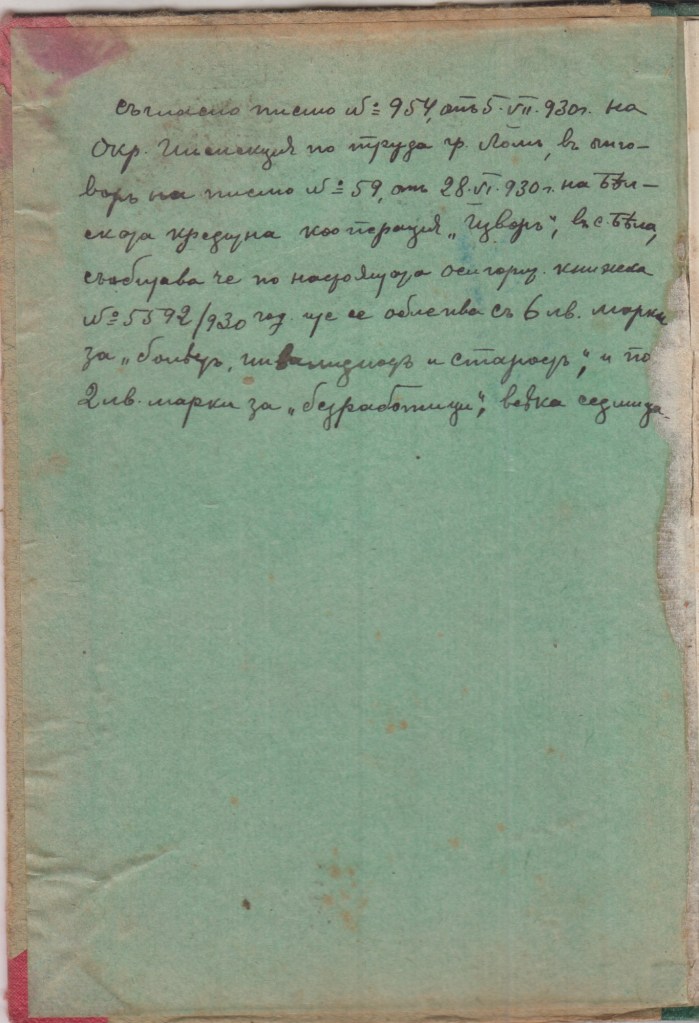 съгласно писмо № 954, отъ 5.VII.930г. на
Окр. Инспекция по труда гр. Ломъ, въ отго-
воръ на писмо № 59, отъ 28.VI.930г. на Бѣл-
ската кредитна кооперация „Изворъ", въ с. Бѣла,
съобщава че по настоящата осигорит. книжка
№ 5592/930 год. ще се облепва съ 6 лв. марки
за „болестъ, инвалидностъ и старостъ", и по
2 лв. марки за „безработици", всѣка седмица.